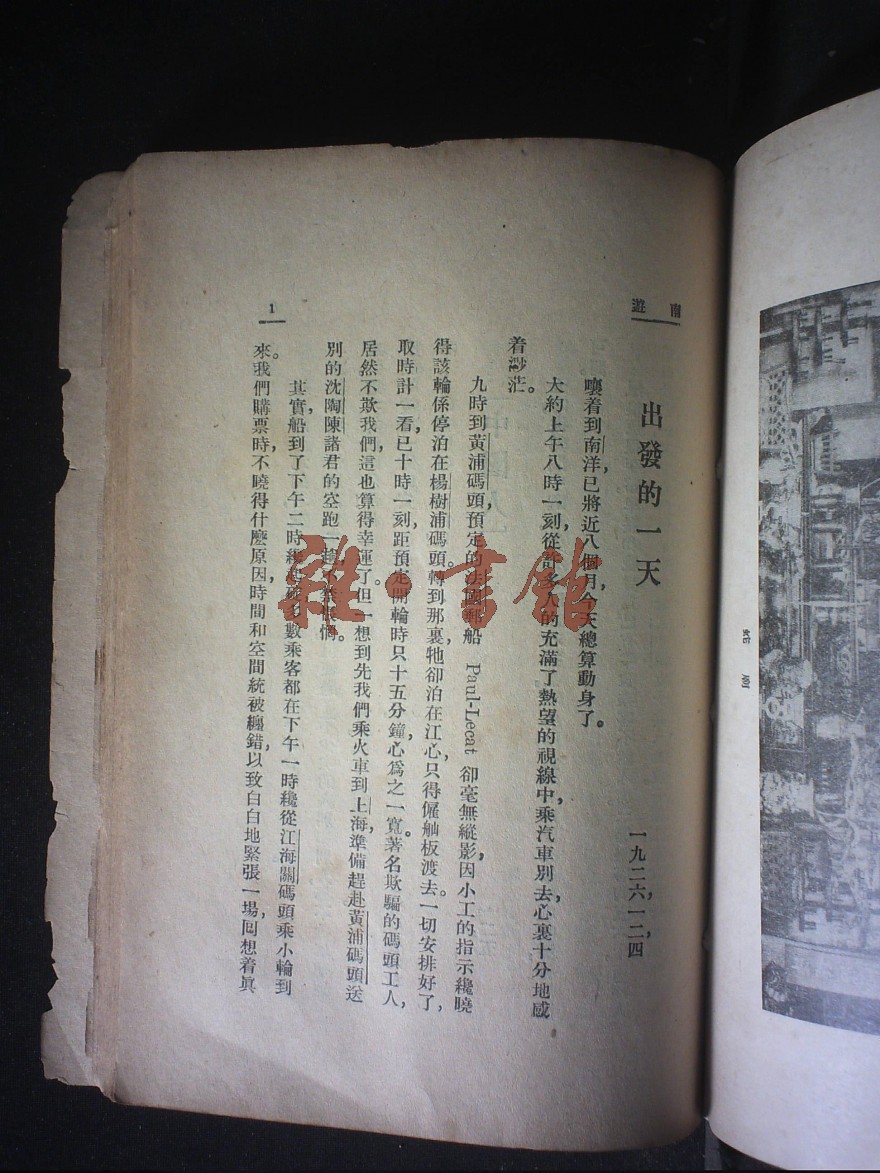 南遊
出發的一天
一九二六，一二，四
嚷着到南洋已將近八個月，今天總算動身了。
大約上午八時一刻，從許多人的充滿了熱望的視線中，乘汽車別去，心裏十分地感
着渺茫。
九時到黃浦碼頭，預定的法國郵船 Paul-Lecat 卻毫無縱影，因小工的指示，纔曉
得該輪係停泊在楊樹浦碼頭。轉到那裏，牠卻泊在江心，只得僱舢板渡去。一切安排好了，
取時計一看，已十時一刻，距預定開輪時只十五分鐘，心爲之一寬。著名欺騙的碼頭工人，
居然不欺我們，這也算得幸運了。但一想到先我們乘火車到上海，準備趕赴黃浦碼頭送
別的沈陶陳諸君的空跑一趟，不禁悵惘。
其實，船到了下午二時纔開駛，多數乘客都在下午一時纔從江海關碼頭乘小輪到
來。我們購票時，不曉得什麽原因，時間和空間統被纏錯，以致白白地緊張一場，囘想着眞
1
雜·書館